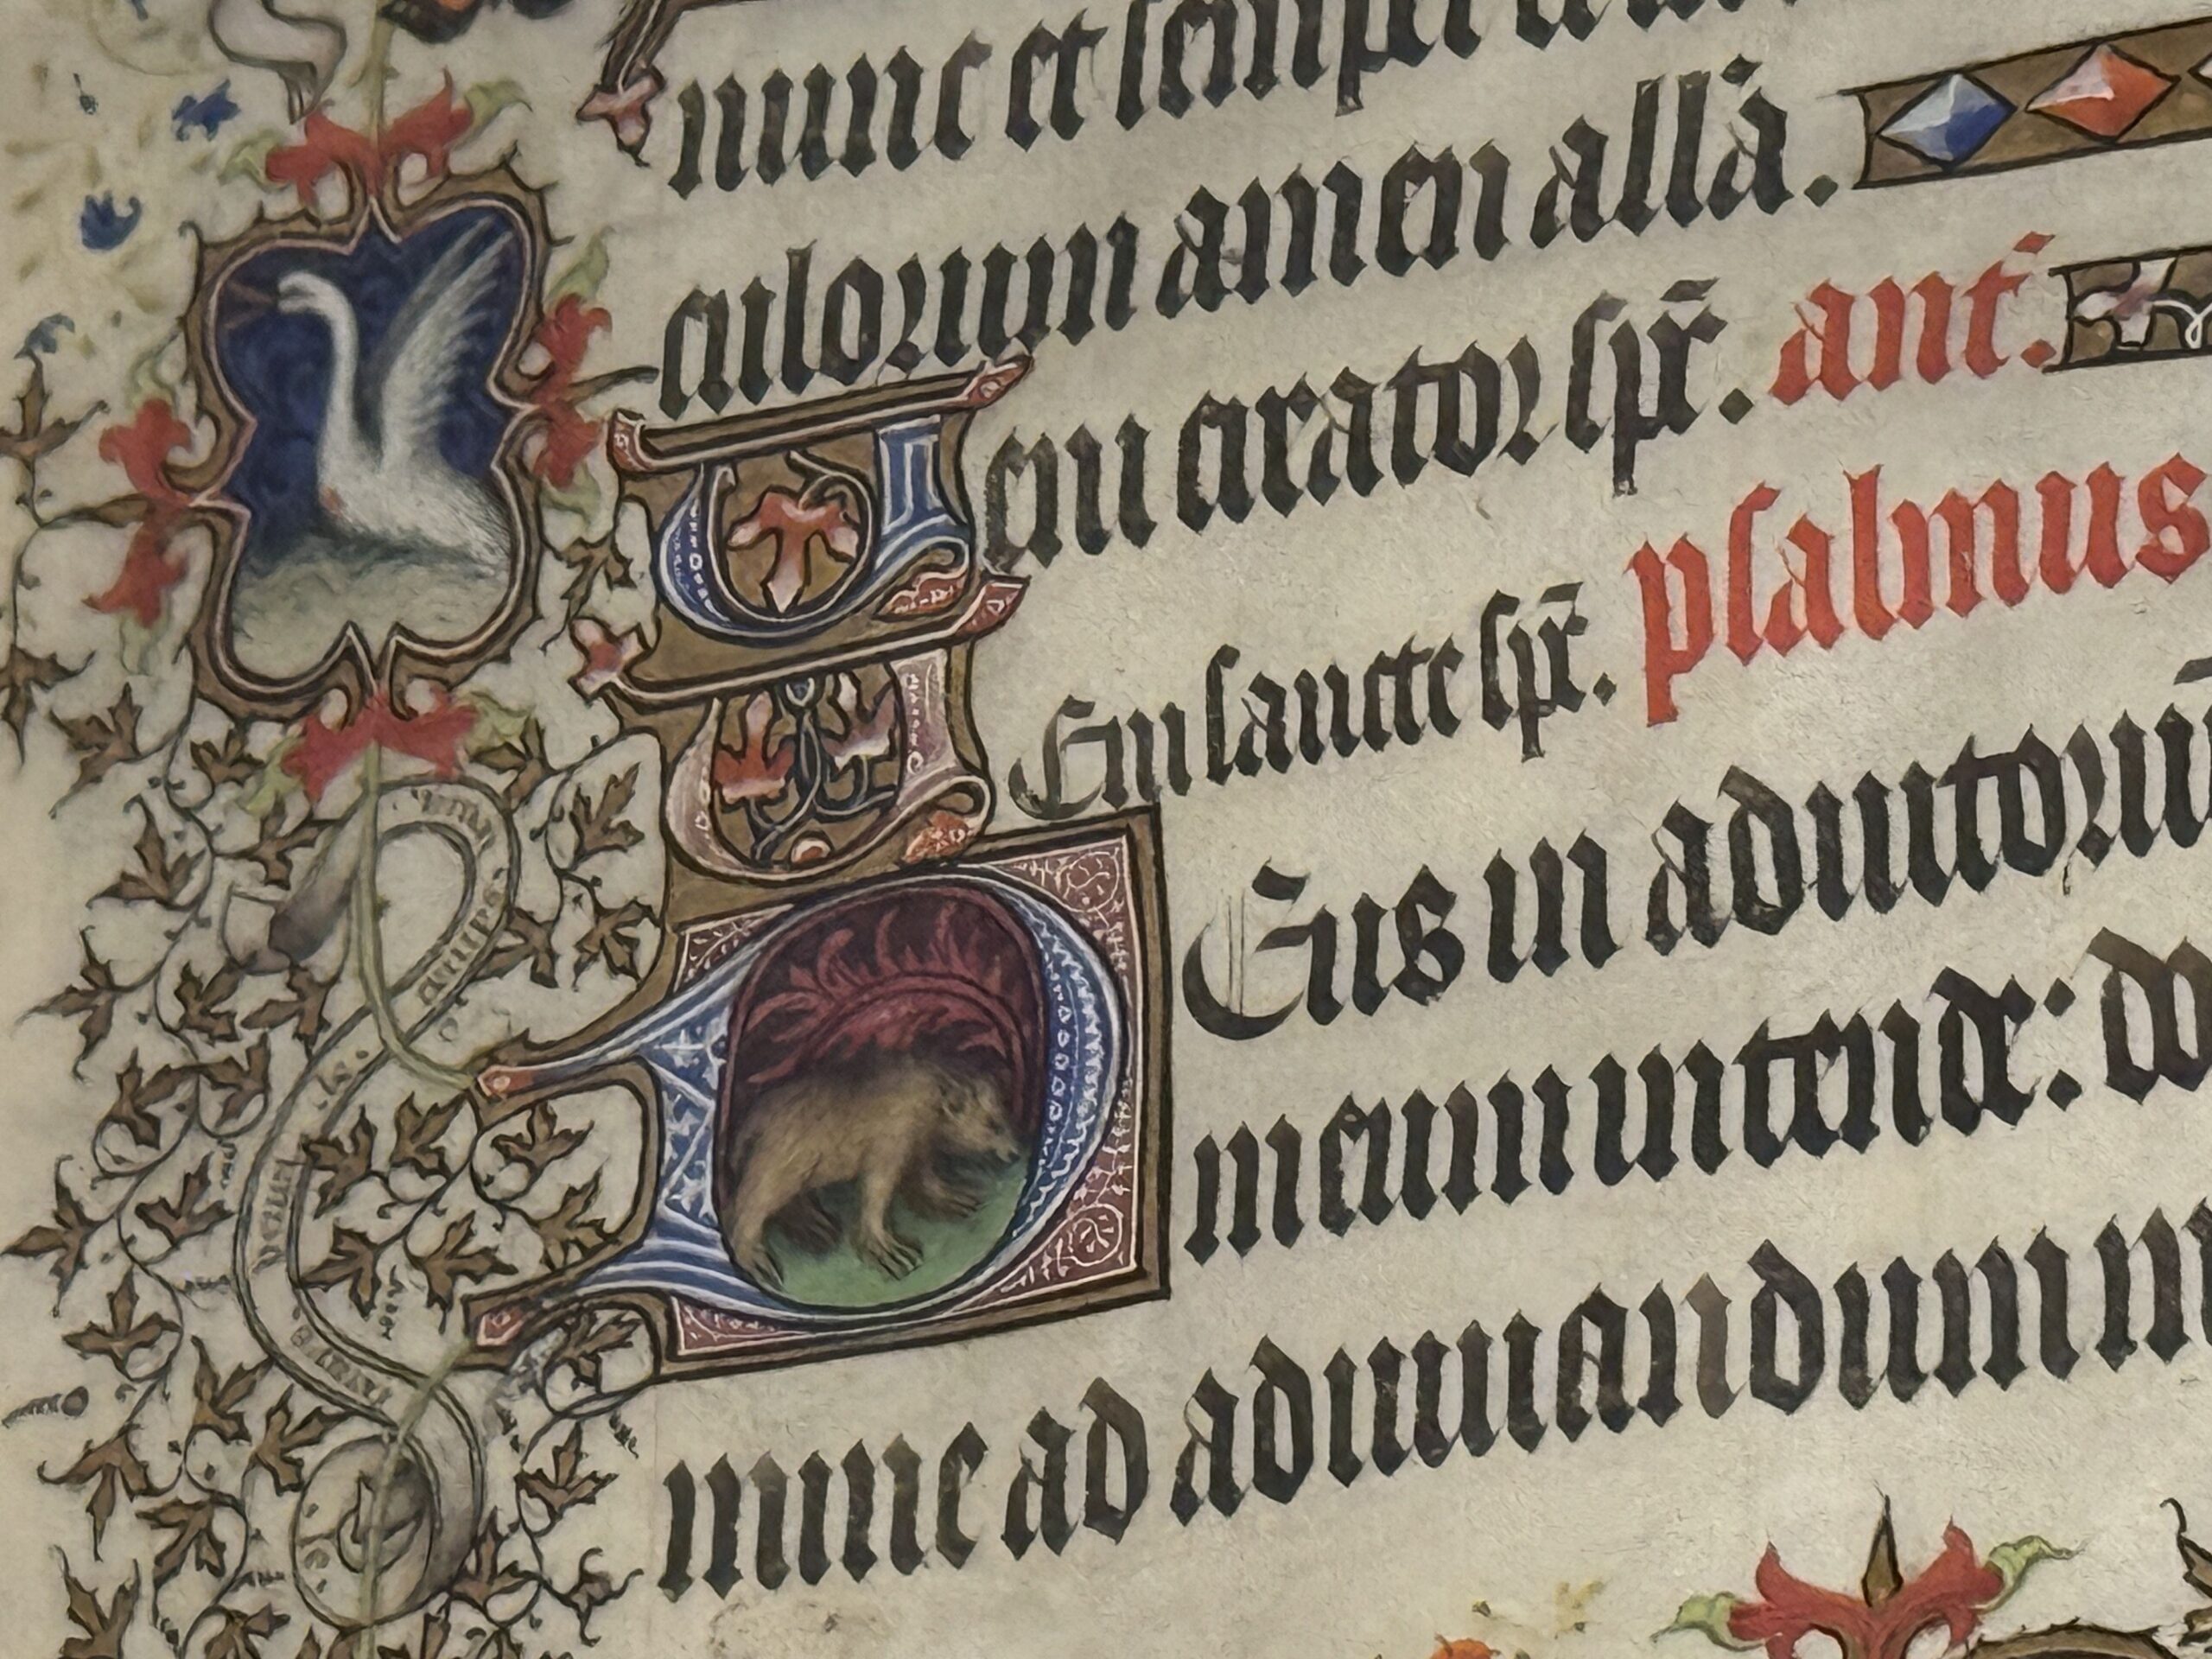 nunc et semper et in
culorum amen allā.
eni creator spr̄. ant̄.
Eni sancte spr̄. psalmus
Eus in adiutoriū
meum intende: do
mine ad adiuuandum m